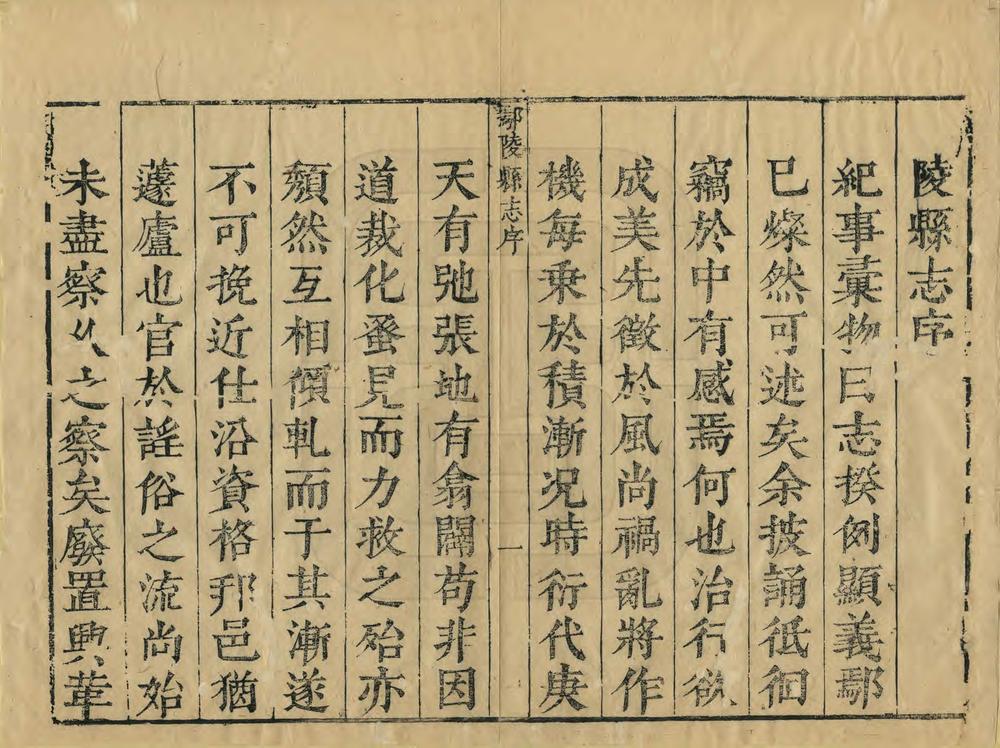 陵縣志序
紀事彙物曰志揆例顯義鄢
已燦然可述矣余披誦祇徊
竊於中有感焉何也治行欲
成美先徵於風尚禍亂將作
機每乗於積漸况時衍代庚
鄢陵縣志序 一
天有弛張地有翕闢苟非因
道裁化蚤見而力救之殆亦
頽然互相傾軋而于其漸遂
不可挽近仕沿資格邦邑猶
蘧廬也官於謡俗之流尚始
未盡察之察矣廢置興革